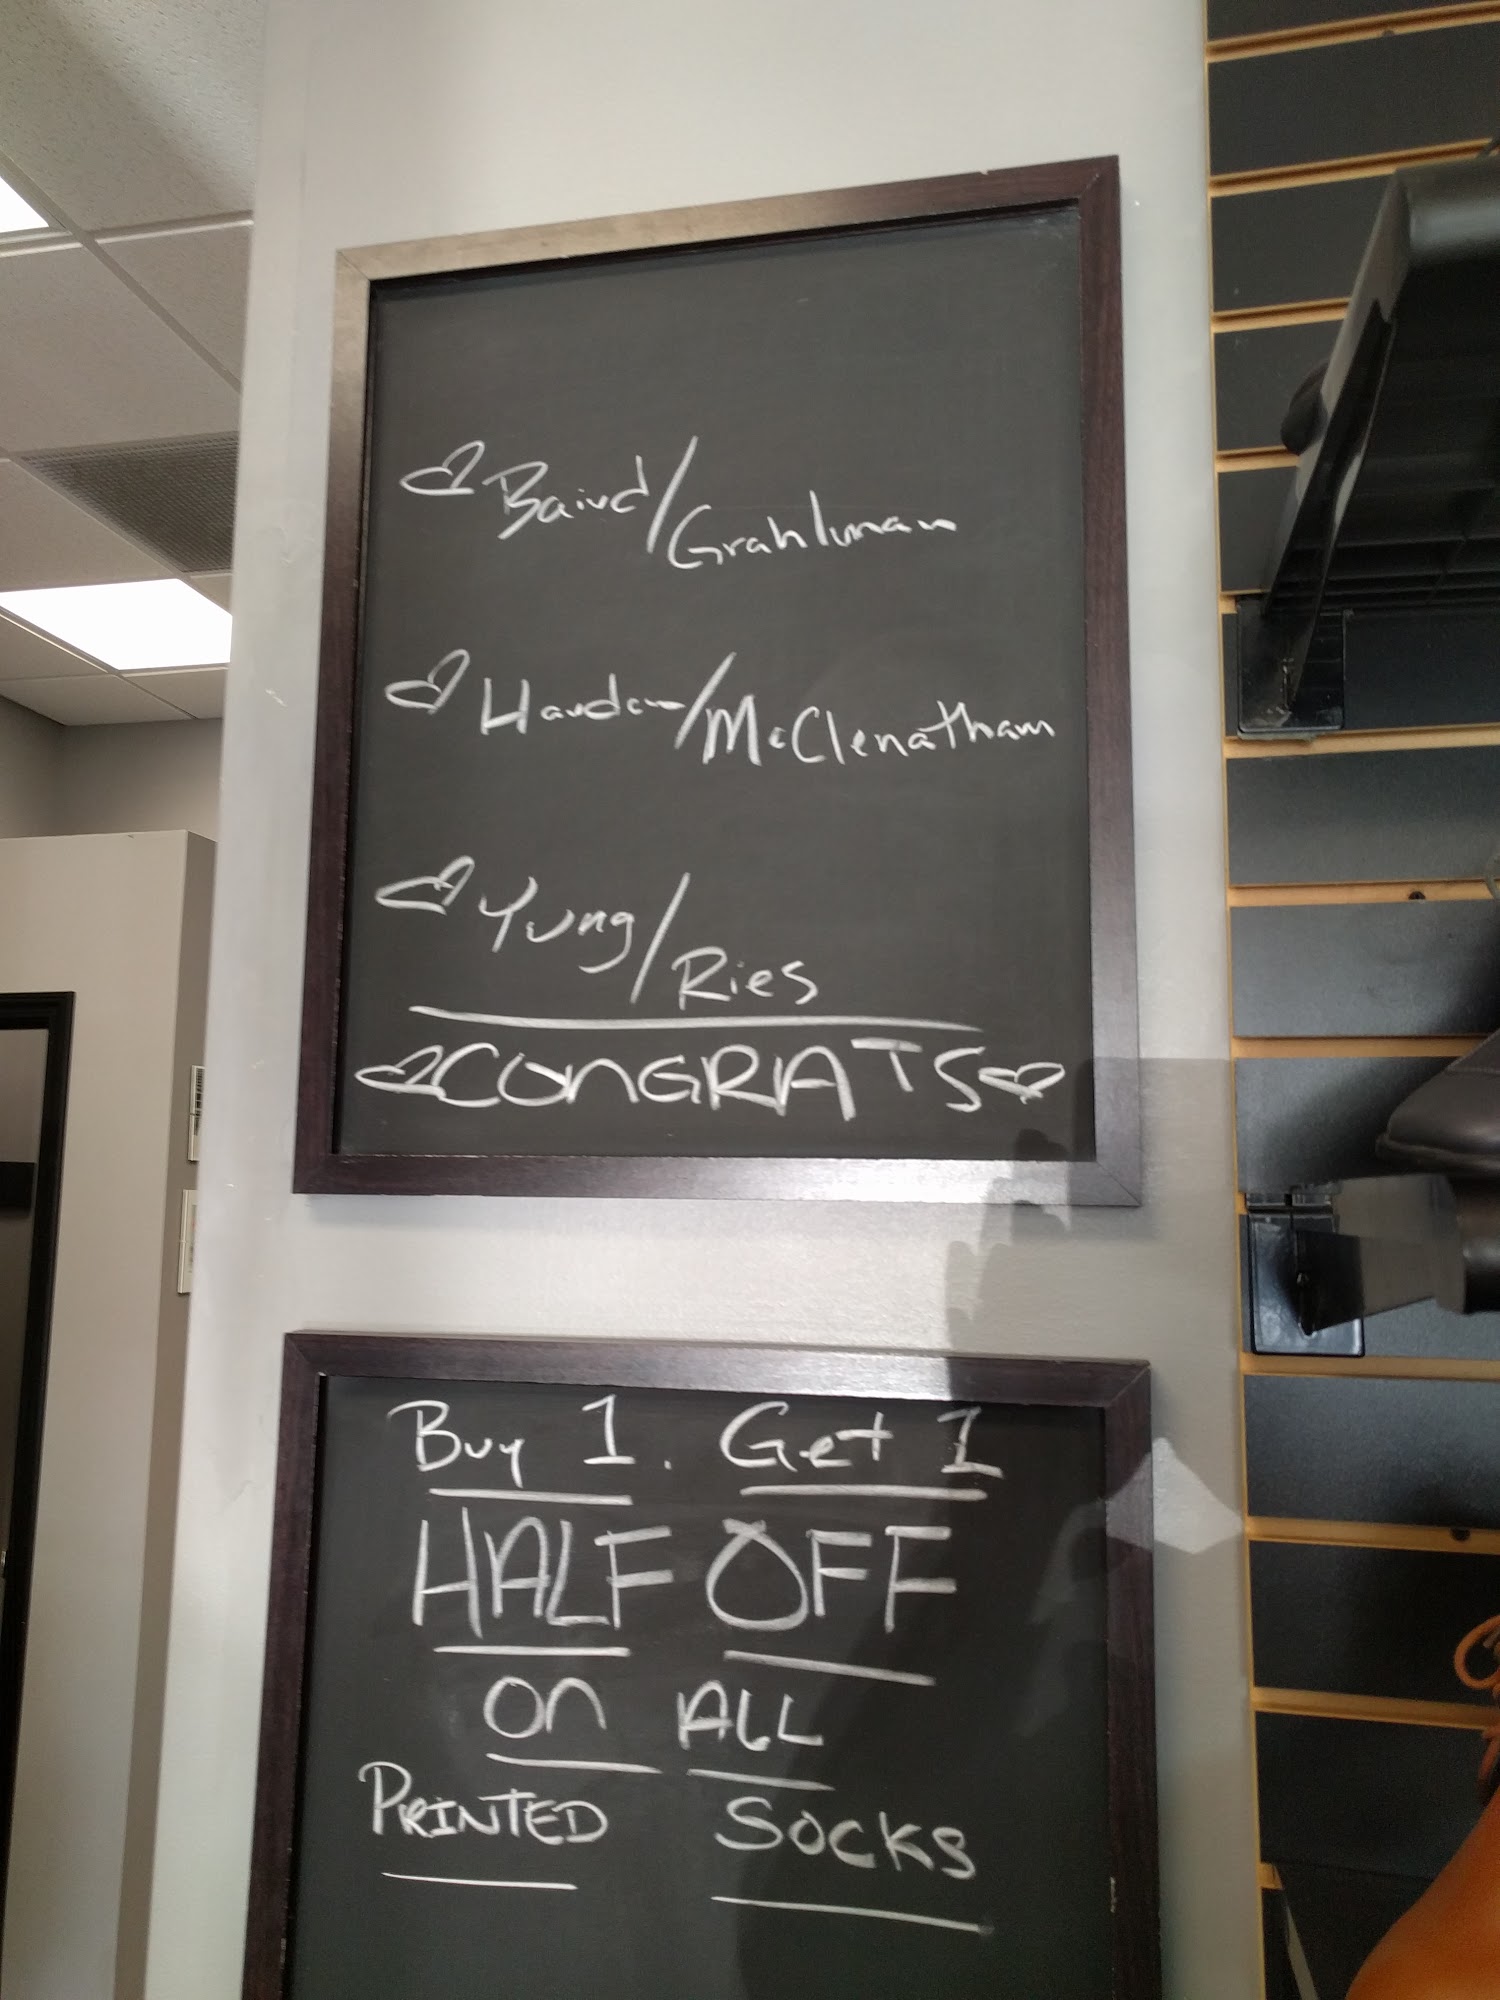 Baird/Grahlman
Hayden/McClenatham
Yung/Ries
CONGRATS
Buy 1. Get 1
HALF OFF
on ALL
PRINTED SOCKS